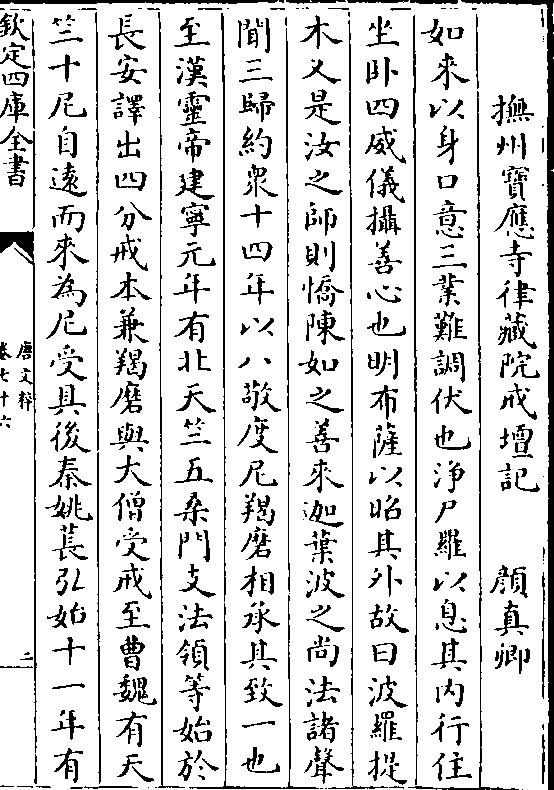 撫州寶應寺律藏院戒壇記 顏真卿
如來以身口意三業難調伏也淨尸羅以息其内行住
坐卧四威儀攝善心也明布薩以昭其外故曰波羅提
木乂是汝之師則憍陳如之善來迦葉波之尚法諸聲
聞三歸約衆十四年以八敬度尼羯磨相承其致一也
至漢靈帝建寧元年有北天竺五桑門支法領等始於
長安譯出四分戒本兼羯磨與大僧受戒至曹魏有天
竺十尼自遠而來為尼受具後秦姚萇弘始十一年有
欽定四庫全書
唐文粹
卷七十六
二